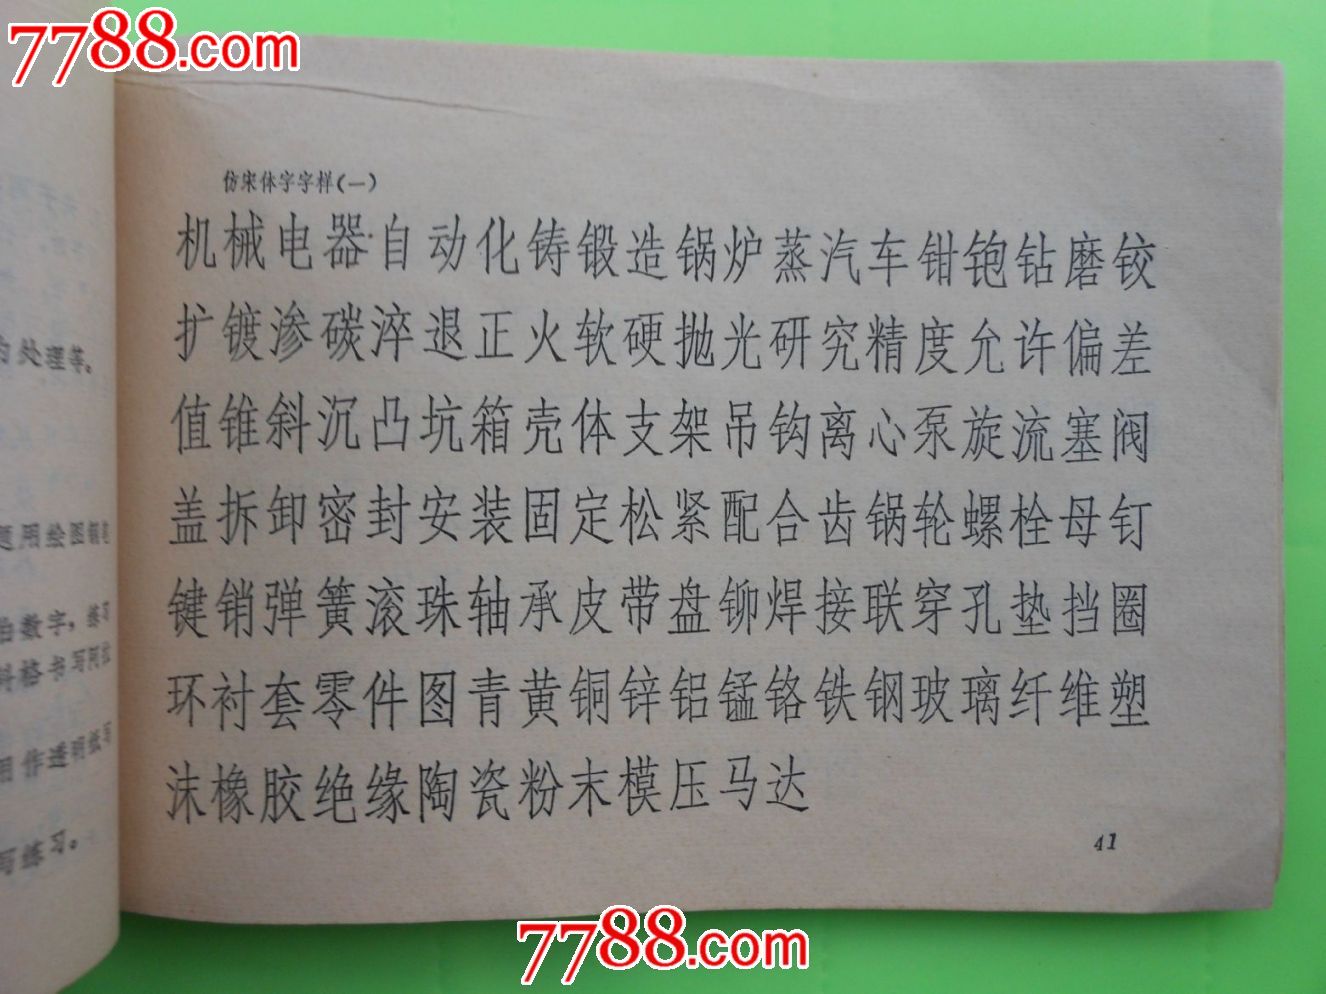 7788.com
仿宋体字字样(一)
机械电器自动化铸锻造锅炉蒸汽车钳铇钻磨铰
扩镀渗碳淬退正火软硬抛光研究精度允许偏差
值锥斜沉凸坑箱壳体支架吊钩离心泵旋流塞阀
盖拆卸密封安装固定松紧配合齿锅轮螺栓母钉
键销弹簧滚珠轴承皮带盘铆焊接联穿孔垫挡圈
环衬套零件图青黄铜锌铝锰铬铁钢玻璃纤维塑
沫橡胶绝缘陶瓷粉末模压马达
41
处理等。
用绘图钢
数字，练习
格书写阿拉
作透明纸写
写练习。
7788.com